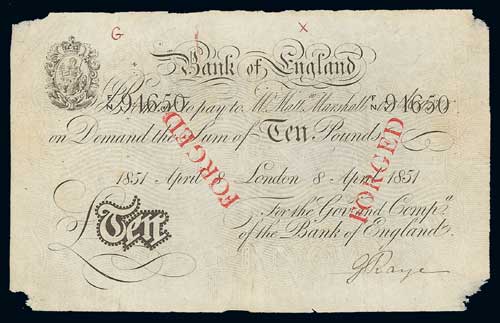 G I X
Bank of England
I Promise to pay to Mr. Matt.w Marshall or Bearer
F/N 94650 F/N 94650
on Demand the Sum of Ten Pounds
1851 April 8 London 8 April 1851
FORGED FORGED
For the Gov.r and Comp.a
£Ten of the Bank of England.